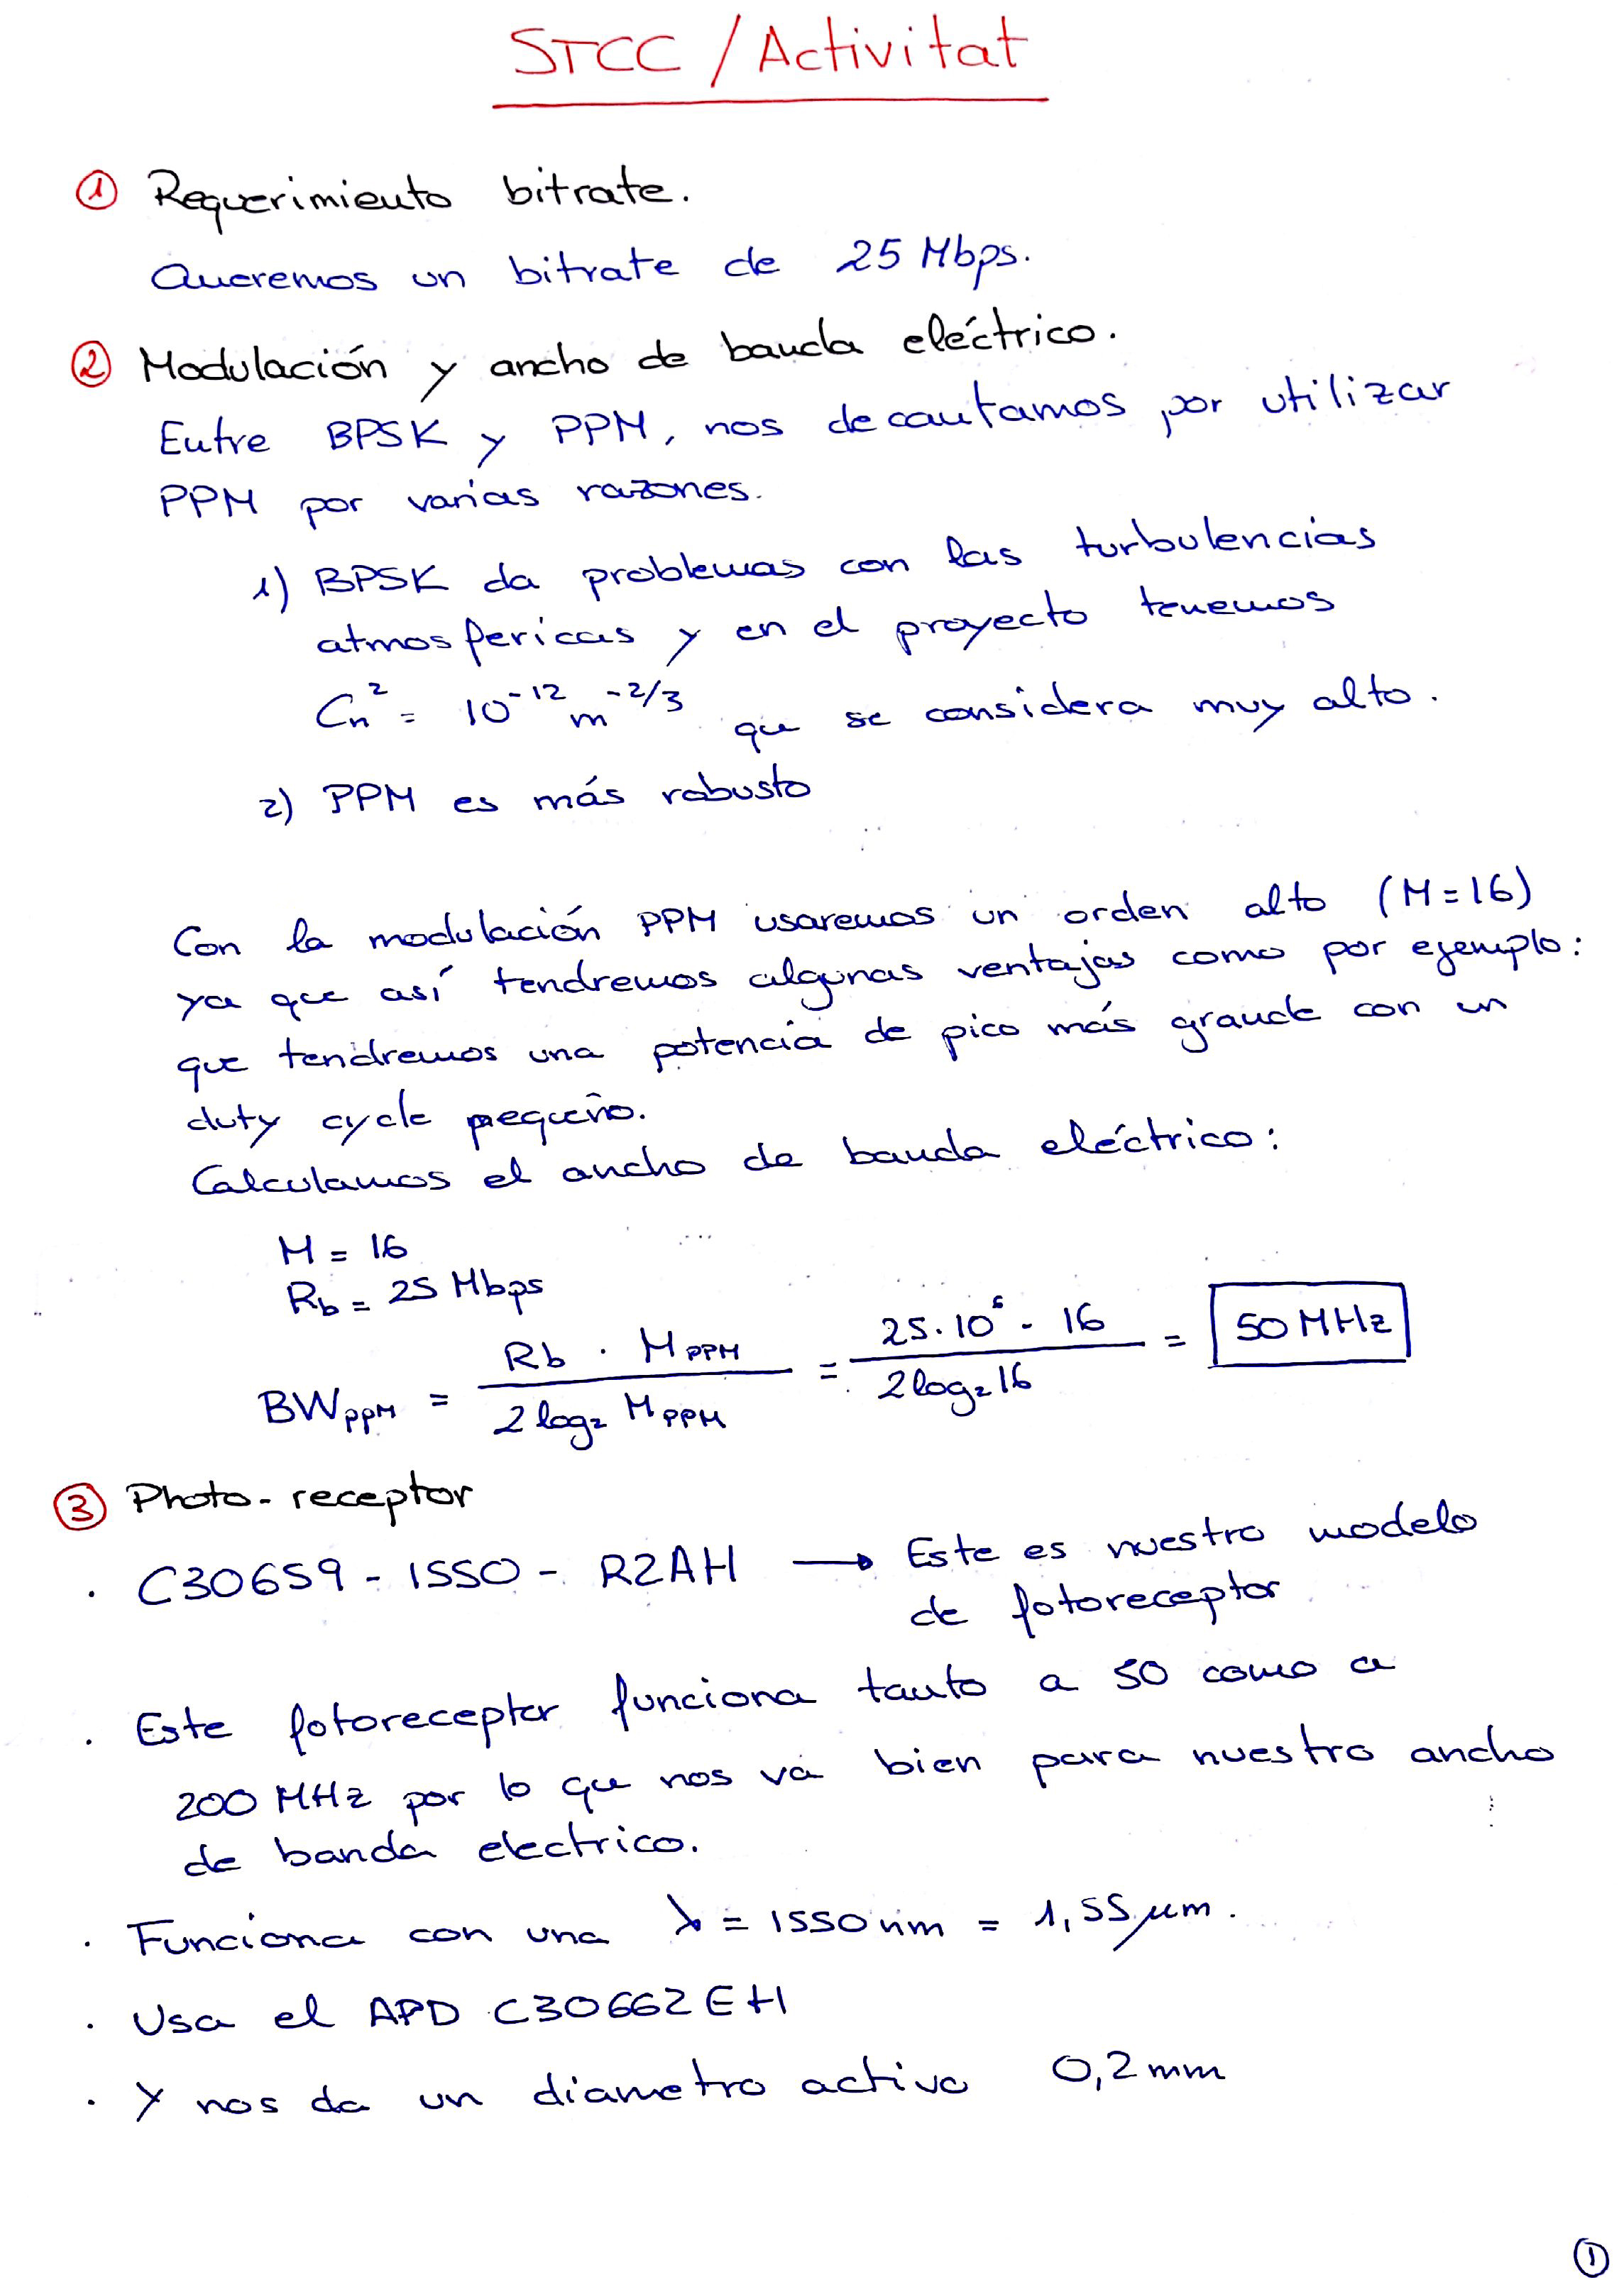 STCC / Activitat
① Requerimiento bitrate.
Queremos un bitrate de 25 Mbps.
② Modulación y ancho de banda eléctrico.
Entre BPSK y PPM, nos decantamos por utilizar
PPM por varias razones.
1) BPSK da problemas con las turbulencias
atmosfericas y en el proyecto tenemos
Cn² = 10⁻¹² m⁻²/³ que se considera muy alto.
2) PPM es más robusto
Con la modulación PPM usaremos un orden alto (M=16)
ya que así tendremos algunas ventajas como por ejemplo:
que tendremos una potencia de pico más grande con un
duty cycle pequeño.
Calculamos el ancho de banda eléctrico:
M = 16
Rb = 25 Mbps
BW_PPM = (Rb · M_PPM) / (2 log₂ M_PPM) = (25·10⁶ · 16) / (2 log₂ 16) = 50 MHz
③ Photo-receptor
· C30659 - 1550 - R2AH → Este es nuestro modelo
de fotoreceptor
· Este fotoreceptor funciona tanto a 50 como a
200 MHz por lo que nos va bien para nuestro ancho
de banda electrico.
· Funciona con una λ = 1550 nm = 1,55 µm.
· Usa el APD C30662EH
· Y nos da un diametro activo 0,2 mm
①